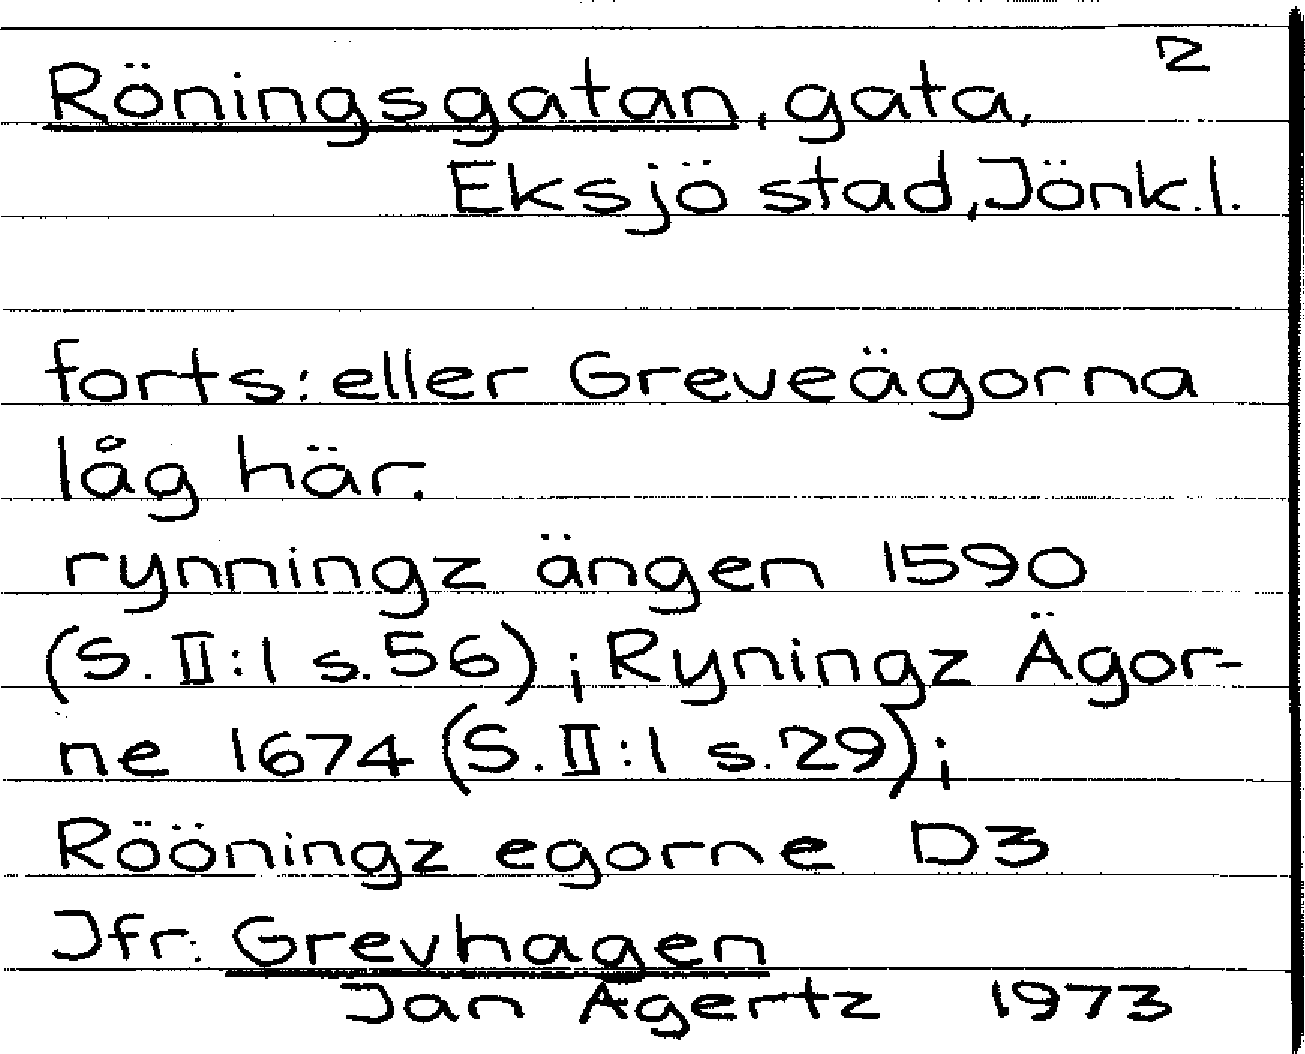 2
Röningsgatan, gata,
Eksjö stad, Jönk.l.
forts: eller Greveägorna
låg här.
rynningz ängen 1590
(S. II:1 s.56); Ryningz Ägor-
ne 1674 (S. II:1 s.29);
Rööningz egorne D3
Jfr. Grevhagen
Jan Agertz 1973